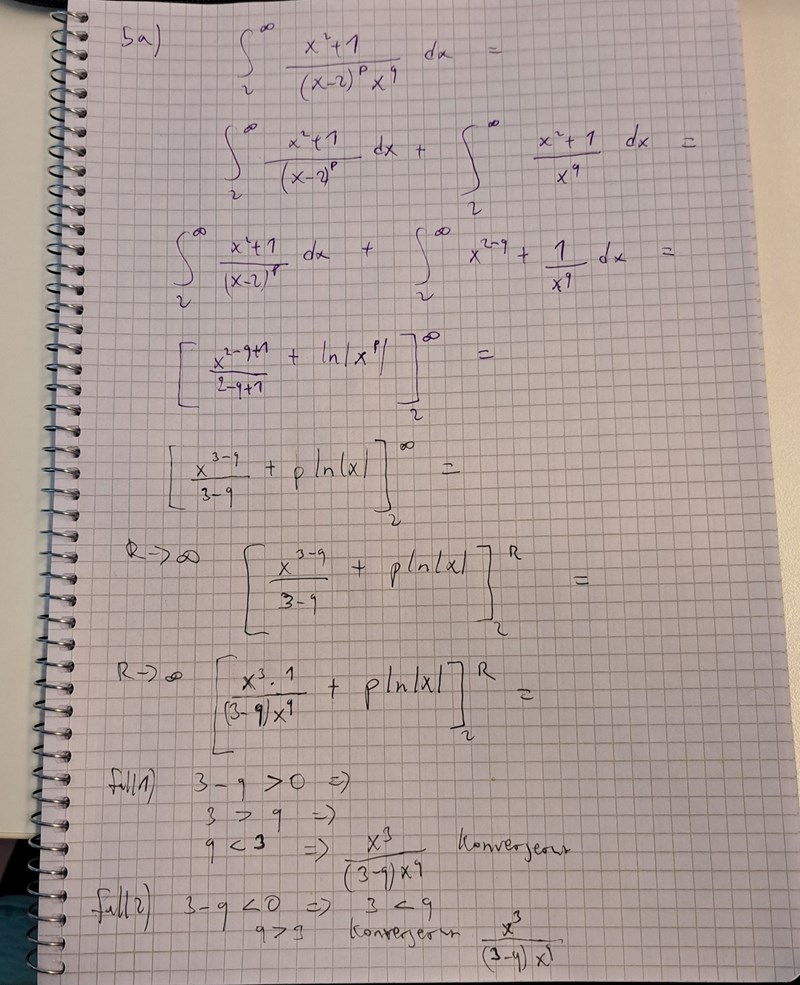 5a) ∫_2^∞ (x²+1)/((x-2)^p x^q) dx =
∫_2^∞ (x²+1)/(x-2)^p dx + ∫_2^∞ (x²+1)/x^q dx =
∫_2^∞ (x²+1)/(x-2)^p dx + ∫_2^∞ x^{2-q} + 1/x^q dx =
[ x^{2-q+1}/(2-q+1) + ln|x^p| ]_2^∞ =
[ x^{3-q}/(3-q) + p ln|x| ]_2^∞ =
R→∞ [ x^{3-q}/(3-q) + p ln|x| ]_2^R =
R→∞ [ x³·1/((3-q)x^q) + p ln|x| ]_2^R =
fall 1) 3-q > 0 ⇒
3 > q ⇒
q < 3 ⇒ x³/((3-q)x^q) Konvergent
fall 2) 3-q < 0 ⇒ 3 < q
q > 3 Konvergent x³/((3-q)x^q)